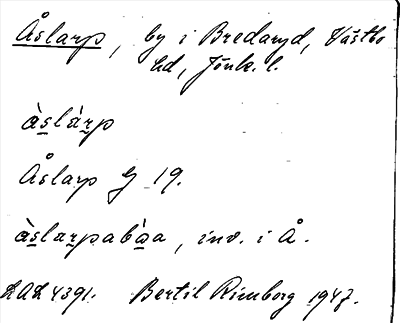 Åslarp, by i Bredaryd, Västbo
hd, Jönk. l.
às̲là̲r̲p
Åslarp G 19.
às̲la̲r̲pabò̲a, inv. i Å.
LAL 4391. Bertil Rimborg 1947.